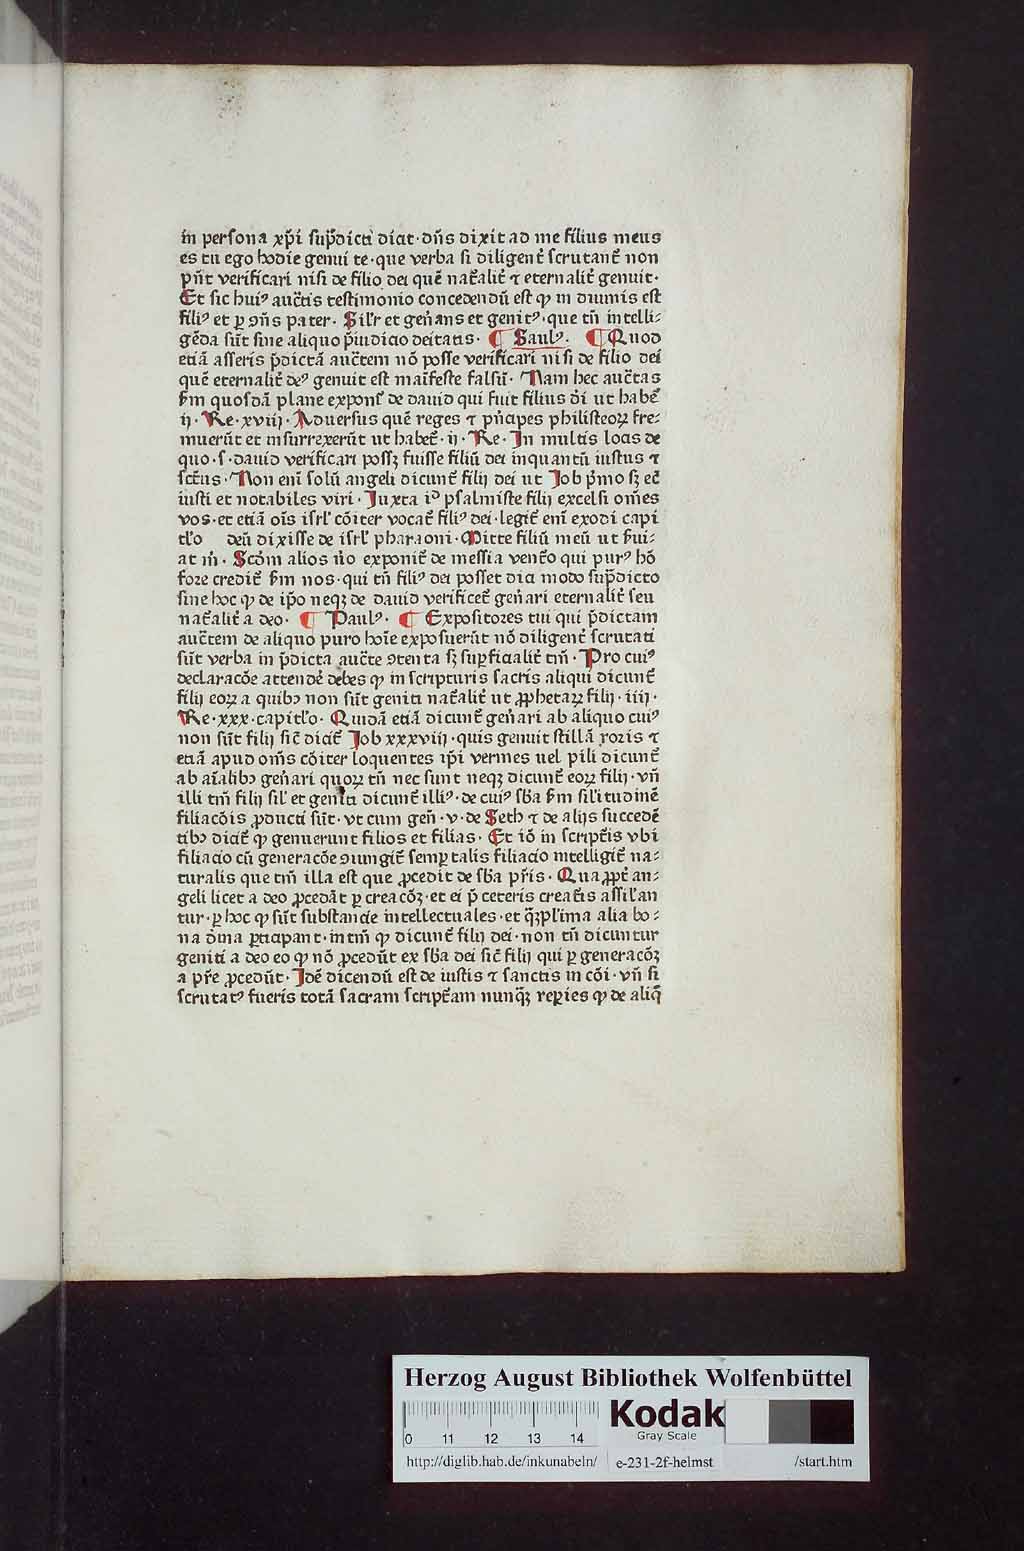 in persona xp̄i sup̄dicti dicit · dn̄s dixit ad me filius meus
es tu ego hodie genui te · que verba si diligenť scrutant᷑ non
pn̄t verificari nisi de filio dei quē nať̄aliť ⁊ eternaliť genuit ·
Et sic huiꝰ auc̄tis testimonio concedendū est ꝙ in diuinis est
filiꝰ et ꝑ ꝯn̄s pater · Sil'r et gen̄ans et genitꝰ · que tn̄ intelli⸗
gēda sūt sine aliquo p̄iudicio deitatis · ¶ Saulꝰ · ¶ Quod
etiā asseris p̄dictā auc̄tem nō posse verificari nisi de filio dei
quē eternaliť deꝰ genuit est maīfeste falsū · Nam hec auc̄tas
ẜm quosdā plane exponit᷑ de dauid qui fuit filius dei ut habet᷑
ij · Re · xviij · Aduersus quē reges ⁊ pn̄cipes philisteoꝝ fre⸗
muerūt et insurrexerūt ut habet᷑ · ij · Re · In multis locis de
quo · s · dauid verificari possꝫ fuisse filiū dei inquantū iustus ⁊
sctūs · Non eni solū angeli dicunt᷑ filij dei ut Job p̄mo sꝫ eē
iusti et notabiles viri · Juxta id psalmiste filij excelsi om̄es
vos · et etiā ois isrl' cōiter vocat᷑ filiꝰ dei · legit᷑ eni exodi capi
tl'o deū dixisse de isrl' pharaoni · Mitte filiū meū ut ẜui⸗
at m̄ · Scōm alios v̄o exponit᷑ de messia vent᷑o qui purꝰ hō
fore credit᷑ ẜm nos · qui tn̄ filiꝰ dei posset dici modo sup̄dicto
sine hoc ꝙ de ip̄o neqꝫ de dauid verificet᷑ gen̄ari eternaliť seu
nať̄aliť a deo · ¶ Paulꝰ · ¶ Expositores tui qui p̄dictam
auc̄tem de aliquo puro hoīe exposuerūt nō diligenť scrutati
sūt verba in p̄dicta auc̄te ꝯtenta sꝫ suꝑficialiť tm̄ · Pro cuiꝰ
declaracōe attendē debes ꝙ in scripturis sacris aliqui dicunt᷑
filij eoꝝ a quibꝰ non sūt geniti nať̄aliť ut ꝓphetaꝝ filij · iiij ·
Re · xxx · capitl'o · Quidā etiā dicunt᷑ gen̄ari ab aliquo cuiꝰ
non sūt filij sic̄ dicit᷑ Job xxxviij · quis genuit stillā rozis ⁊
etiā apud om̄s cōiter loquentes ip̄i vermes uel pili dicunt᷑
ab aīalibꝰ gen̄ari quoꝝ tn̄ nec sunt neqꝫ dicunt᷑ eoꝝ filij · vn̄
illi tm̄ filij sil' et geniti dicunt᷑ illiꝰ · de cuiꝰ sb̄a ẜm sil'itudinē
filiacōis ꝓducti sūt · vt cum gen̄ · v · de Seth ⁊ de alijs succedē
tibꝰ dicit᷑ ꝙ genuerunt filios et filias · Et iō in script᷑is vbi
filiacio cū generacōe ꝯiungit᷑ semꝑ talis filiacio intelligit᷑ na⸗
turalis que tm̄ illa est que ꝓcedit de sb̄a pr̄is · Quaꝓpt᷑ an⸗
geli licet a deo ꝓcedāt ꝑ creacōꝫ · et ei p̄ ceteris creat᷑is assil'an
tur · ꝑ hoc ꝙ sūt substancie intellectuales · et qꝫpl'ima alia bo⸗
na dīna ꝑticipant · intm̄ ꝙ dicunt᷑ filij dei · non tn̄ dicuntur
geniti a deo eo ꝙ nō ꝓcedūt ex sb̄a dei sic̄ filij qui ꝑ generacōꝫ
a pr̄e ꝓcedūt · Idē dicendū est de iustis ⁊ sanctis in cōi · vn̄ si
scrutatꝰ fueris totā sacram script᷑am nunqꝫ reꝑies ꝙ de aliq̄
Herzog August Bibliothek Wolfenbüttel
Kodak
Gray Scale
0 11 12 13 14
http://diglib.hab.de/inkunabeln/ e-231-2f-helmst /start.htm